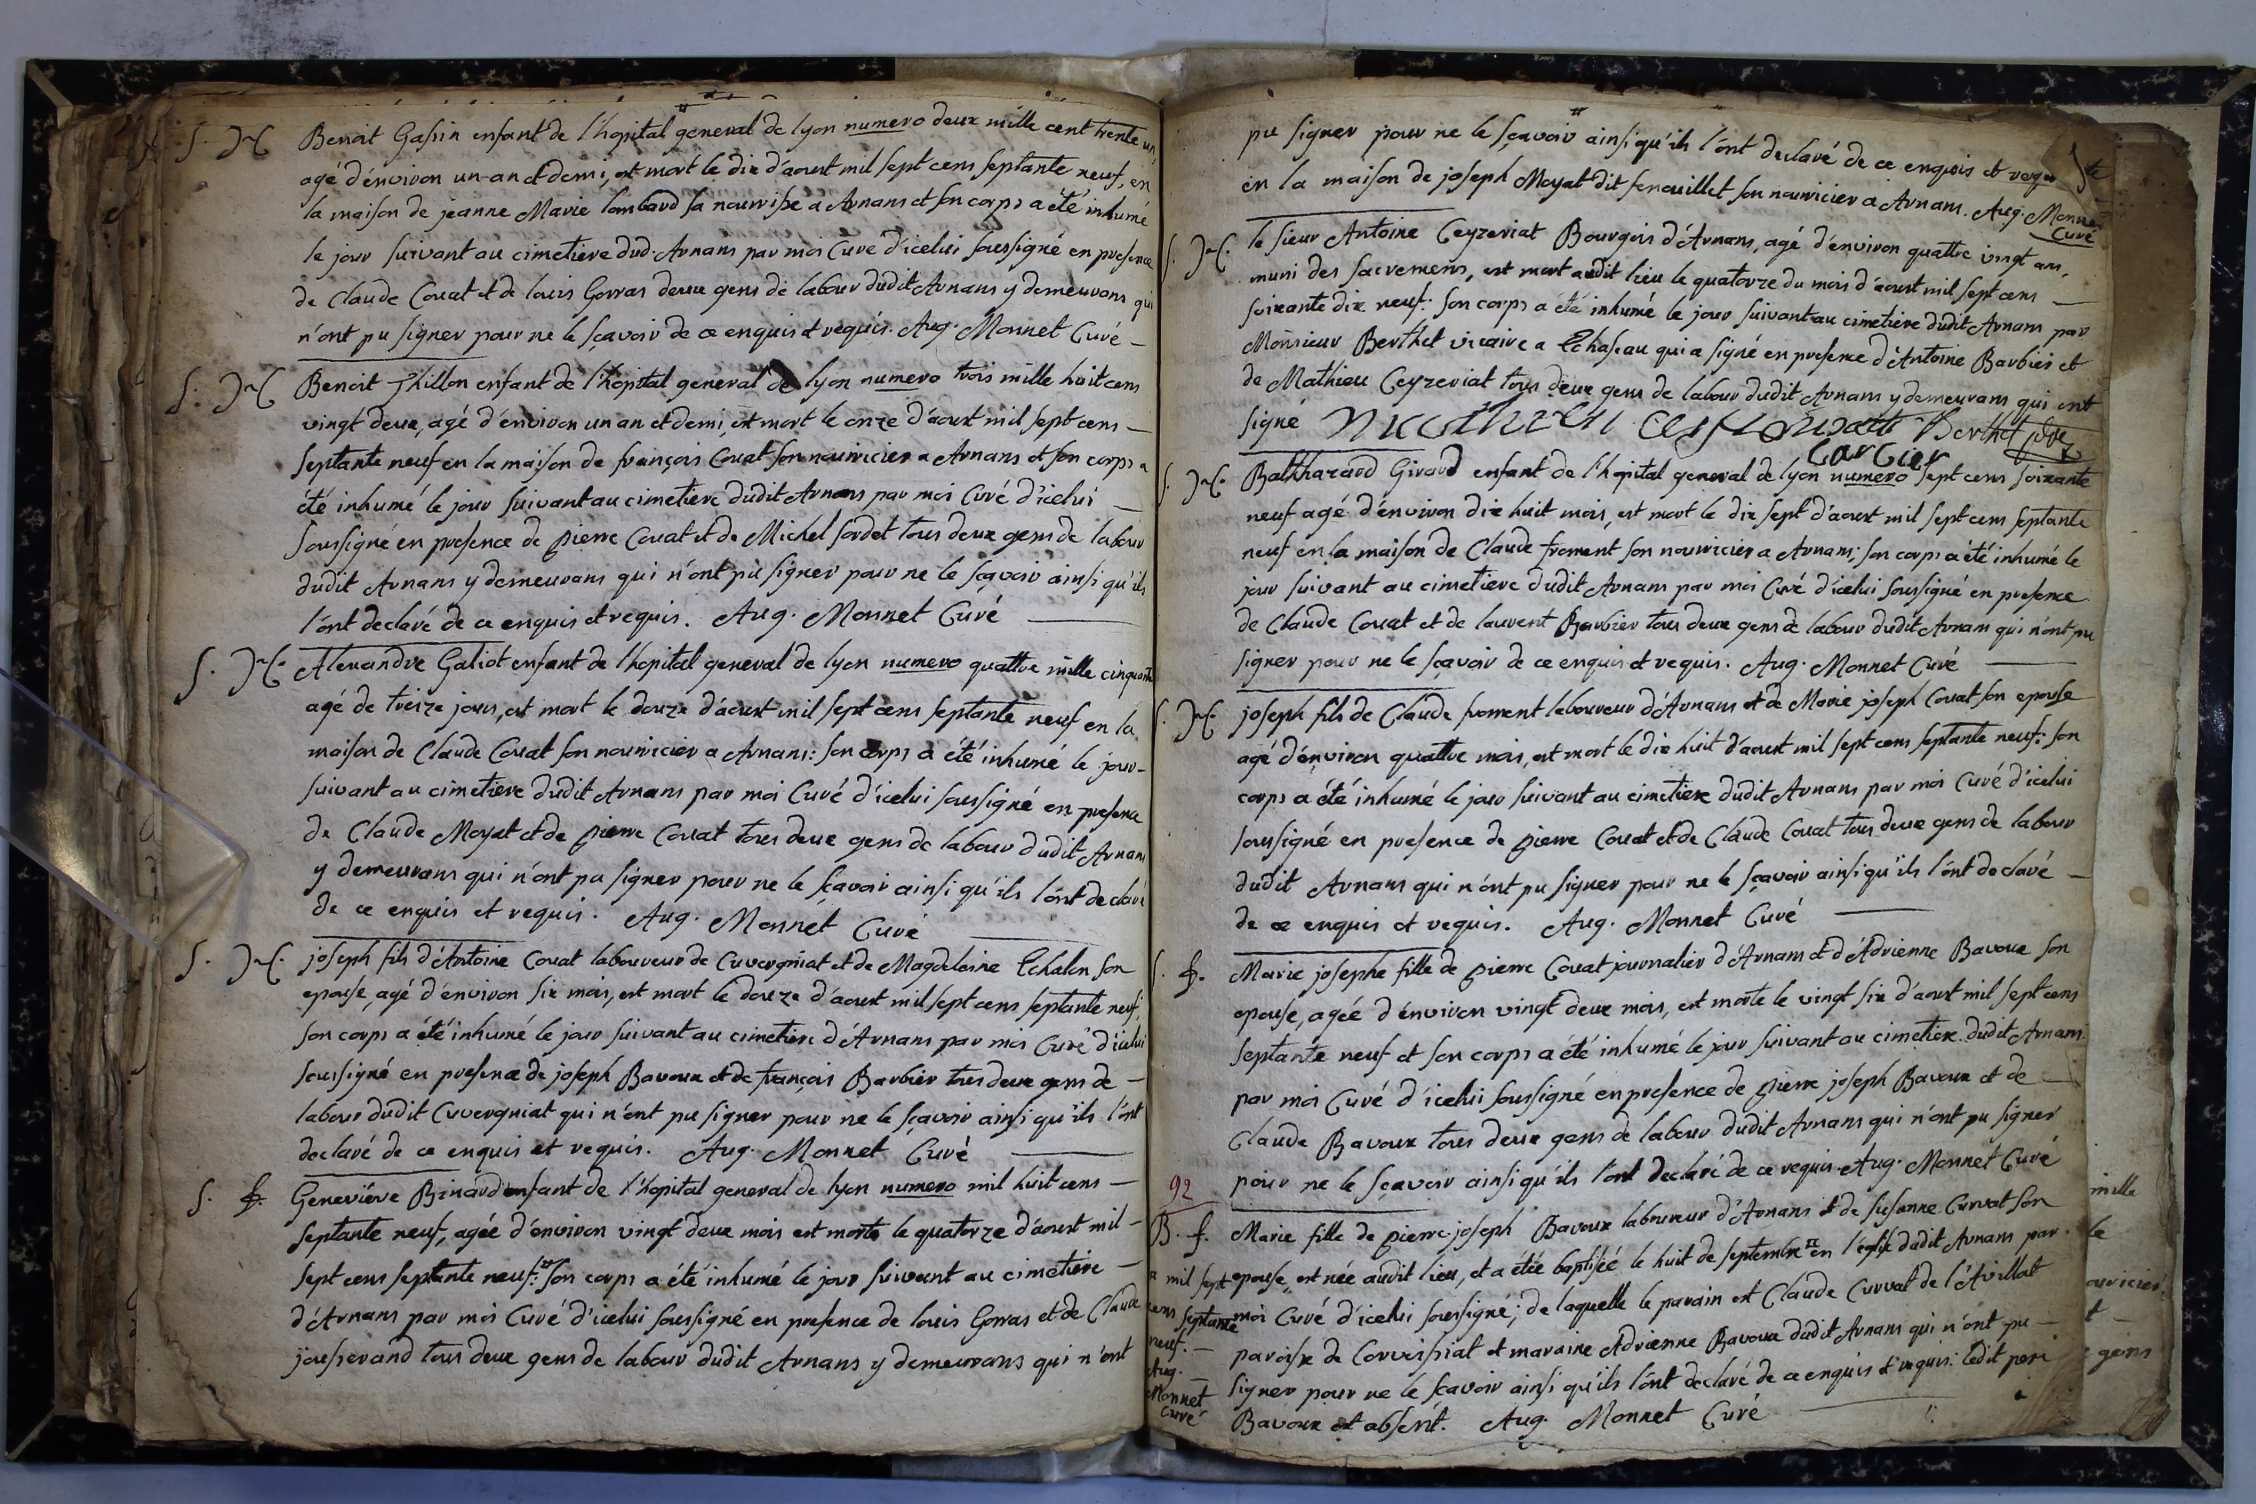 S. M. Benoit Gassin enfant de l'hopital general de lyon numero deux mille cent trente un,
agé d'énviron un an et demi, est mort le dix d'aoust mil sept cens septante neuf, en
la maison de jeanne Marie lombard sa nourrisse a Arnans et son corps a été inhumé
le jour suivant au cimetiere dud. Arnans par moi Curé d'icelui soussigné en presence
de Claude Couat et de louis Gorras deux gens de labour dudit Arnans y demeurans qui
n'ont pu signer pour ne le sçavoir de ce enquis et requis. Aug. Monnet Curé
S. M. Benoit hillon enfant de l'hopital general de lyon numero trois mille huit cens
vingt deux, agé d'énviron un an et demi, est mort le onze d'aoust mil sept cens
septante neuf en la maison de françois Couat son nourricier a Arnans et son corps a
été inhumé le jour suivant au cimetiere dudit Arnans par moi Curé d'icelui
soussigné en presence de pierre Couat et de Michel sordet tous deux gens de labour
dudit Arnans y demeurans qui n'ont pu signer pour ne le sçavoir ainsi qu'ils
l'ont declaré de ce enquis et requis. Aug. Monnet Curé
S. M. Alexandre Galiot enfant de l'hopital general de lyon numero quattre mille cinquante
agé de treize jours, est mort le douze d'aoust mil sept cens septante neuf en la
maison de Claude Couat son nourricier a Arnans: son corps a été inhumé le jour
suivant au cimetiere dudit Arnans par moi Curé d'icelui soussigné en presence
de Claude Moyat et de pierre Couat tous deux gens de labour dudit Arnans
y demeurans qui n'ont pu signer pour ne le sçavoir ainsi qu'ils l'ont declaré
de ce enquis et requis. Aug. Monnet Curé
S. M. joseph fils d'Antoine Couat laboureur de Cuvergniat et de Magdelaine Echalon son
epouse, agé d'énviron six mois, est mort le douze d'aoust mil sept cens septante neuf;
son corps a été inhumé le jour suivant au cimetiere d'Arnans par moi Curé d'icelui
soussigné en presence de joseph Bavoux et de françois Barbier tous deux gens de
labour dudit Cuvergniat qui n'ont pu signer pour ne le sçavoir ainsi qu'ils l'ont
declaré de ce enquis et requis. Aug. Monnet Curé
S. f. Geneviéve Binard enfant de l'hopital general de lyon numero mil huit cens
septante neuf, agée d'énviron vingt deux mois est morte le quatorze d'aoust mil
sept cens septante neuf: # son corps a été inhumé le jour suivant au cimetiére
d'Arnans par moi Curé d'icelui soussigné en presence de louis Gorras et de Claude
jousserand tous deux gens de labour dudit Arnans y demeurans qui n'ont
pu signer pour ne le sçavoir ainsi qu'ils l'ont declaré de ce enquis et requis
# en la maison de joseph Moyat dit fenouillet son nourricier a Arnans. Aug. Monnet
Curé
S. M. le sieur Antoine Ceyzeriat Bourgois d'Arnans, agé d'énviron quattre vingt ans,
muni des sacremens, est mort audit lieu le quatorze du mois d'aoust mil sept cens
soixante dix neuf: son corps a été inhumé le jour suivant au cimetiére dudit Arnans par
Monsieur Berthet vicaire a Echaseau qui a signé en presence d'Antoine Barbier et
de Mathieu Ceyzeriat tous deux gens de labour dudit Arnans y demeurans qui ont
signé Berthet
S. M. Balthazard Girard enfant de l'hopital general de lyon numero sept cens soixante
neuf agé d'énviron dix huit mois, est mort le dix sept d'aoust mil sept cens septante
neuf en la maison de Claude froment son nourricier a Arnans; son corps a été inhumé le
jour suivant au cimetiere dudit Arnans par moi Curé d'icelui soussigné en presence
de Claude Couat et de laurent Barbier tous deux gens de labour dudit Arnans qui n'ont pu
signer pour ne le sçavoir de ce enquis et requis. Aug. Monnet Curé
S. M. joseph fils de Claude froment laboureur d'Arnans et de Marie joseph Couat son epouse
agé d'énviron quattre mois, est mort le dix huit d'aoust mil sept cens septante neuf: son
corps a été inhumé le jour suivant au cimetiere dudit Arnans par moi Curé d'icelui
soussigné en presence de pierre Couat et de Claude Couat tous deux gens de labour
dudit Arnans qui n'ont pu signer pour ne le sçavoir ainsi qu'ils l'ont declaré
de ce enquis et requis. Aug. Monnet Curé
S. f. Marie josephe fille de pierre Couat journalier d'Arnans et d'Adrienne Bavoux son
epouse, agée d'énviron vingt deux mois, est morte le vingt six d'aoust mil sept cens
septante neuf et son corps a été inhumé le jour suivant au cimetiere dudit Arnans
par moi Curé d'icelui soussigné en presence de pierre joseph Bavoux et de
Claude Bavoux tous deux gens de labour dudit Arnans qui n'ont pu signer
pour ne le sçavoir ainsi qu'ils l'ont declaré de ce requis. Aug. Monnet Curé
92
B. f. Marie fille de pierre joseph Bavoux laboureur d'Arnans et de susanne Curvat son
epouse, est née audit lieu, et a étée baptisée le huit de septembre # en l'église dudit Arnans par
moi Curé d'icelui soussigné; de laquelle le parain est Claude Curvat de l'Avillat
paroisse de Corveissiat et maraine Adrienne Bavoux dudit Arnans qui n'ont pu
signer pour ne le sçavoir ainsi qu'ils l'ont declaré de ce enquis et requis: ledit pere
Bavoux est absent. Aug. Monnet Curé
# mil sept
cens septante
neuf.
Aug.
Monnet
Curé
mille
le
ouricier
t
gens